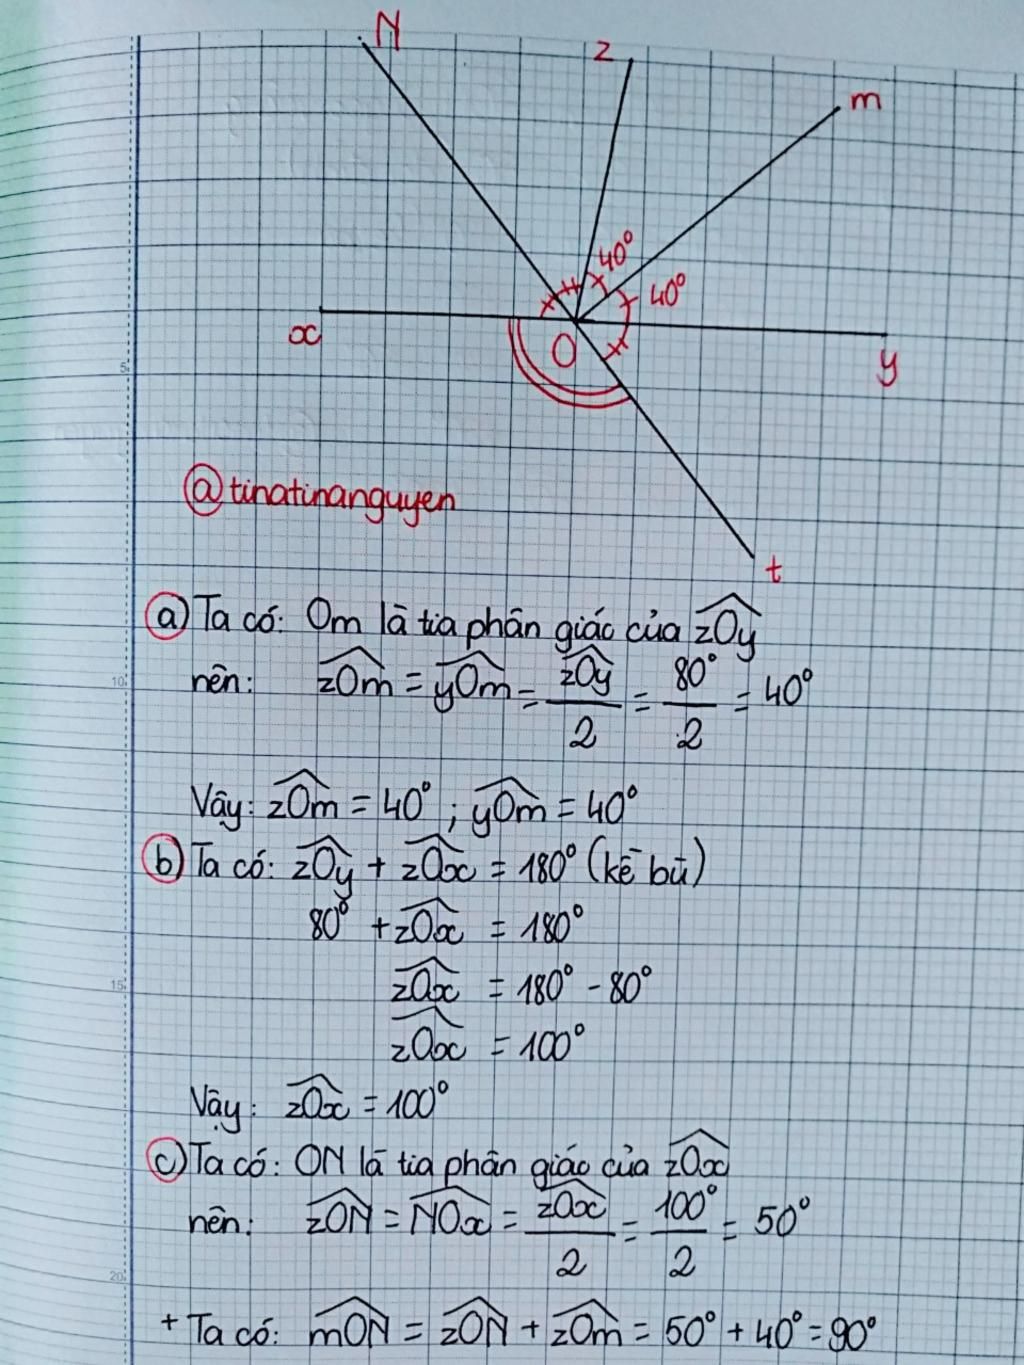 N
z
m
40°
40°
x
O
y
@tinatinanguyen
t
a) Ta có: Om là tia phân giác của zOy
nên: zOm = yOm = zOy/2 = 80°/2 = 40°
Vậy: zOm = 40° ; yOm = 40°
b) Ta có: zOy + zOx = 180° (kề bù)
80° + zOx = 180°
zOx = 180° - 80°
zOx = 100°
Vậy: zOx = 100°
c) Ta có: ON là tia phân giác của zOx
nên: zON = NOx = zOx/2 = 100°/2 = 50°
+ Ta có: mON = zON + zOm = 50° + 40° = 90°
5
10
15
20